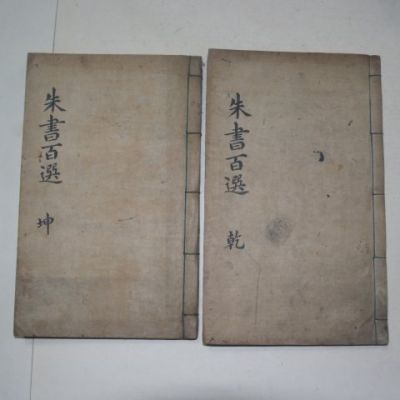 朱書百選 乾
朱書百選 坤